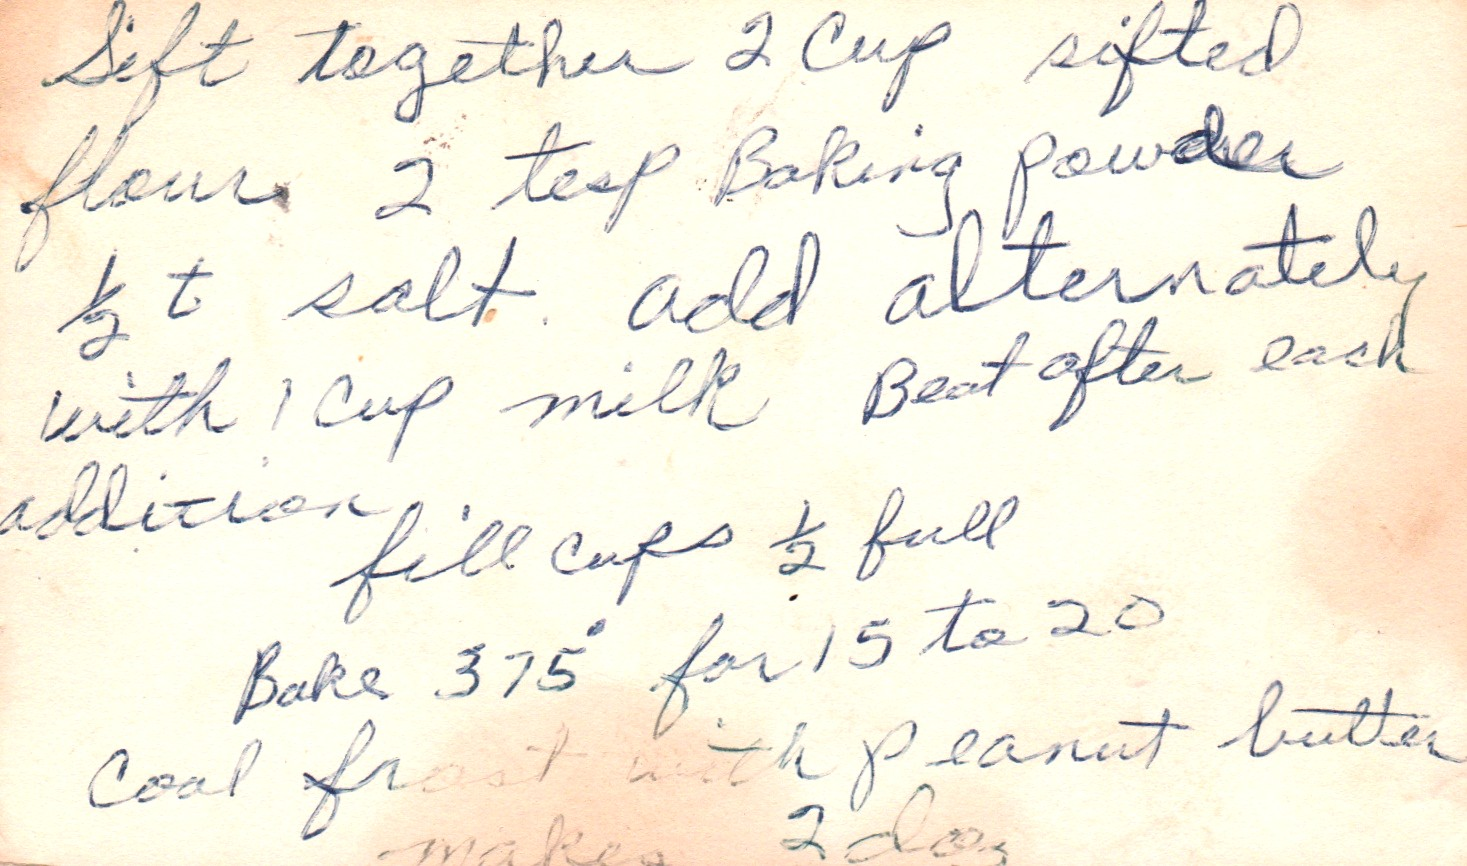 Sift together 2 Cup sifted
flour 2 tesp Baking powder
½ t salt. add alternately
with 1 Cup milk Beat after each
addition
fill cups ½ full
Bake 375° for 15 to 20
Cool frost with peanut butter
makes 2 doz